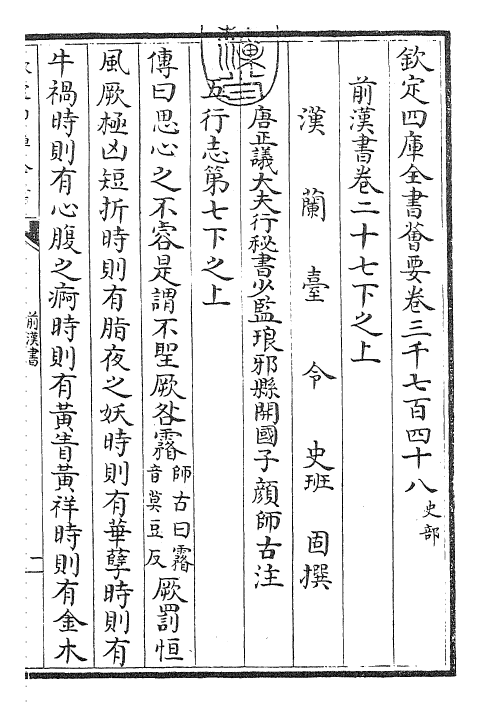 欽定四庫全書薈要卷三千七百四十八 史部
前漢書卷二十七下之上
漢蘭臺令史班固撰
唐正議大夫行秘書少監琅邪縣開國子顔師古注
五行志第七下之上
傳曰思心之不睿是謂不聖厥咎霿師古曰霿音莫豆反厥罰恒
風厥極凶短折時則有脂夜之妖時則有華孽時則有
牛禍時則有心腹之痾時則有黃眚黃祥時則有金木
前漢書